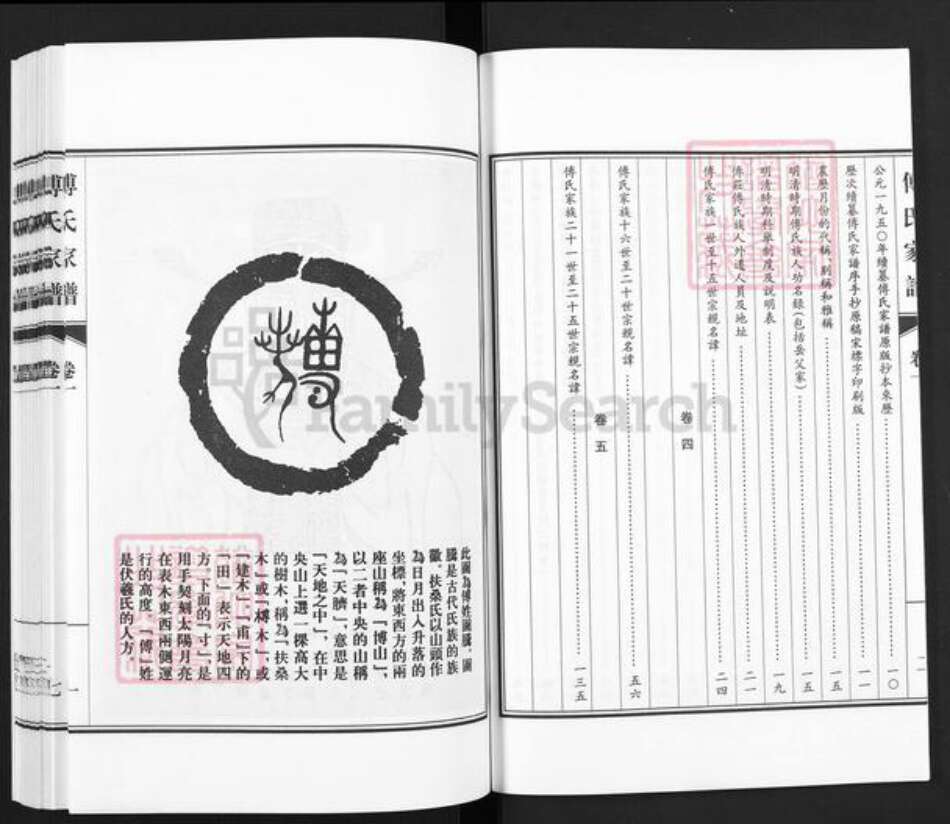 傅氏家譜
卷一
公元一九五〇年續纂傅氏家譜原版抄本來歷……一〇
歷次續纂傅氏家譜序手抄原稿宋標字印刷版……一一
農歷月份的代稱、別稱和雅稱……一五
明清時期傅氏族人功名錄(包括岳父家)……一五
明清時期科舉制度及說明表……一九
傅莊傅氏族人外遷人員及地址……二一
傅氏家族一世至十五世宗親名諱……二四
卷四
傅氏家族十六世至二十世宗親名諱……五六
卷五
傅氏家族二十一世至二十五世宗親名諱……一三五
FamilySearch
此圖為傅姓圖騰,圖
騰是古代氏族的族
徽。扶桑氏以山頭作
為日月出入升落的
坐標,將東西方的兩
座山稱為「博山」,
以二者中央的山稱
為「天臍」,意思是
「天地之中」,在中
央山上選一棵高大
的樹木,稱為「扶桑
木」或「榑木」,或
「建木」。「甫」下的
「田」表示天地四
方,下面的「寸」是
用手契刻太陽月亮
在表木東西兩側運
行的高度,「傅」姓
是伏羲氏的人方。
傅氏家譜
卷一
一